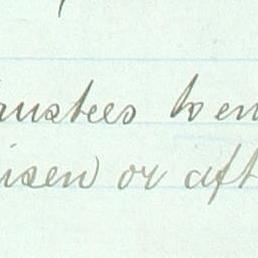 trustees to en
isen or aft